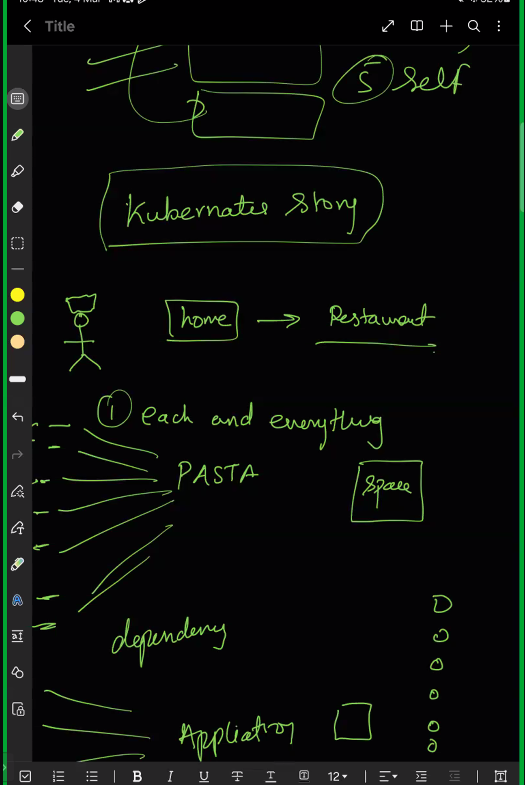 Title
5 self
Kubernates Story
home → Restaurant
① each and everything
PASTA
space
dependeny
Appliation
B I U T T T 12